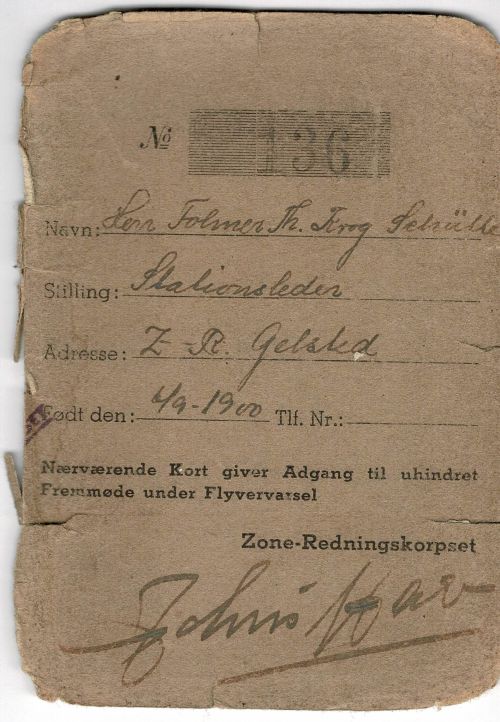 № 136
Navn: Herr Folmer Th. Krog
Stilling: Stationsleder
Adresse: Z-R. Gelsted
Født den: 4/9-1900 Tlf. Nr.:
Nærværende Kort giver Adgang til uhindret
Fremmøde under Flyvervarsel
Zone-Redningskorpset